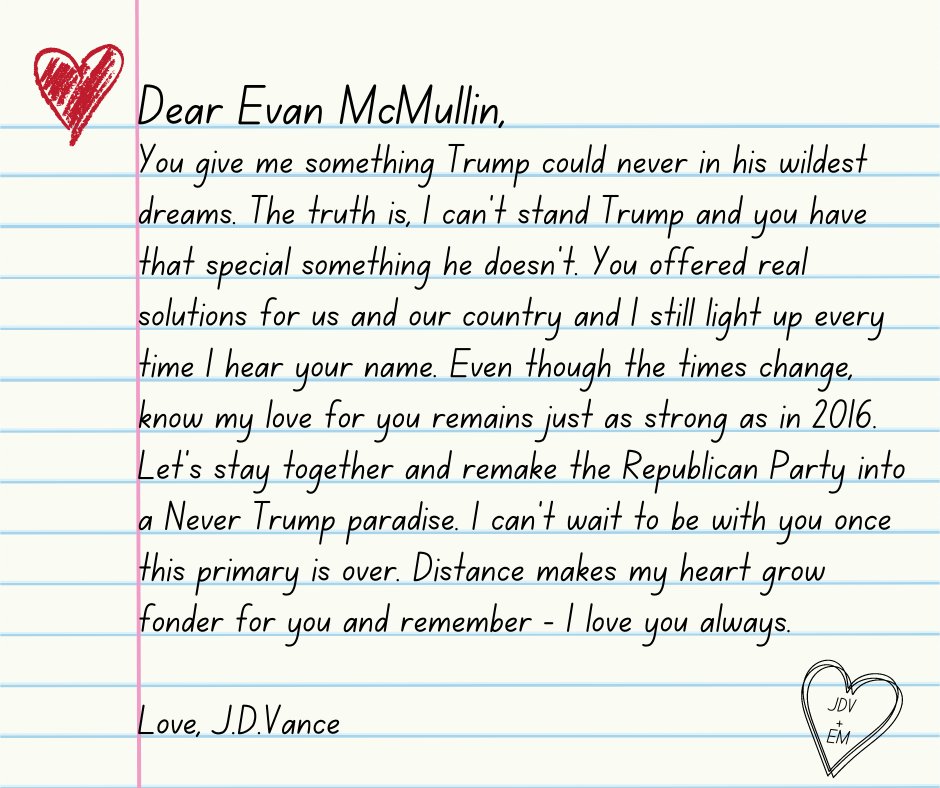 Dear Evan McMullin,
You give me something Trump could never in his wildest
dreams. The truth is, I can't stand Trump and you have
that special something he doesn't. You offered real
solutions for us and our country and I still light up every
time I hear your name. Even though the times change,
know my love for you remains just as strong as in 2016.
Let's stay together and remake the Republican Party into
a Never Trump paradise. I can't wait to be with you once
this primary is over. Distance makes my heart grow
fonder for you and remember - I love you always.
Love, J.D.Vance
JDV
+
EM